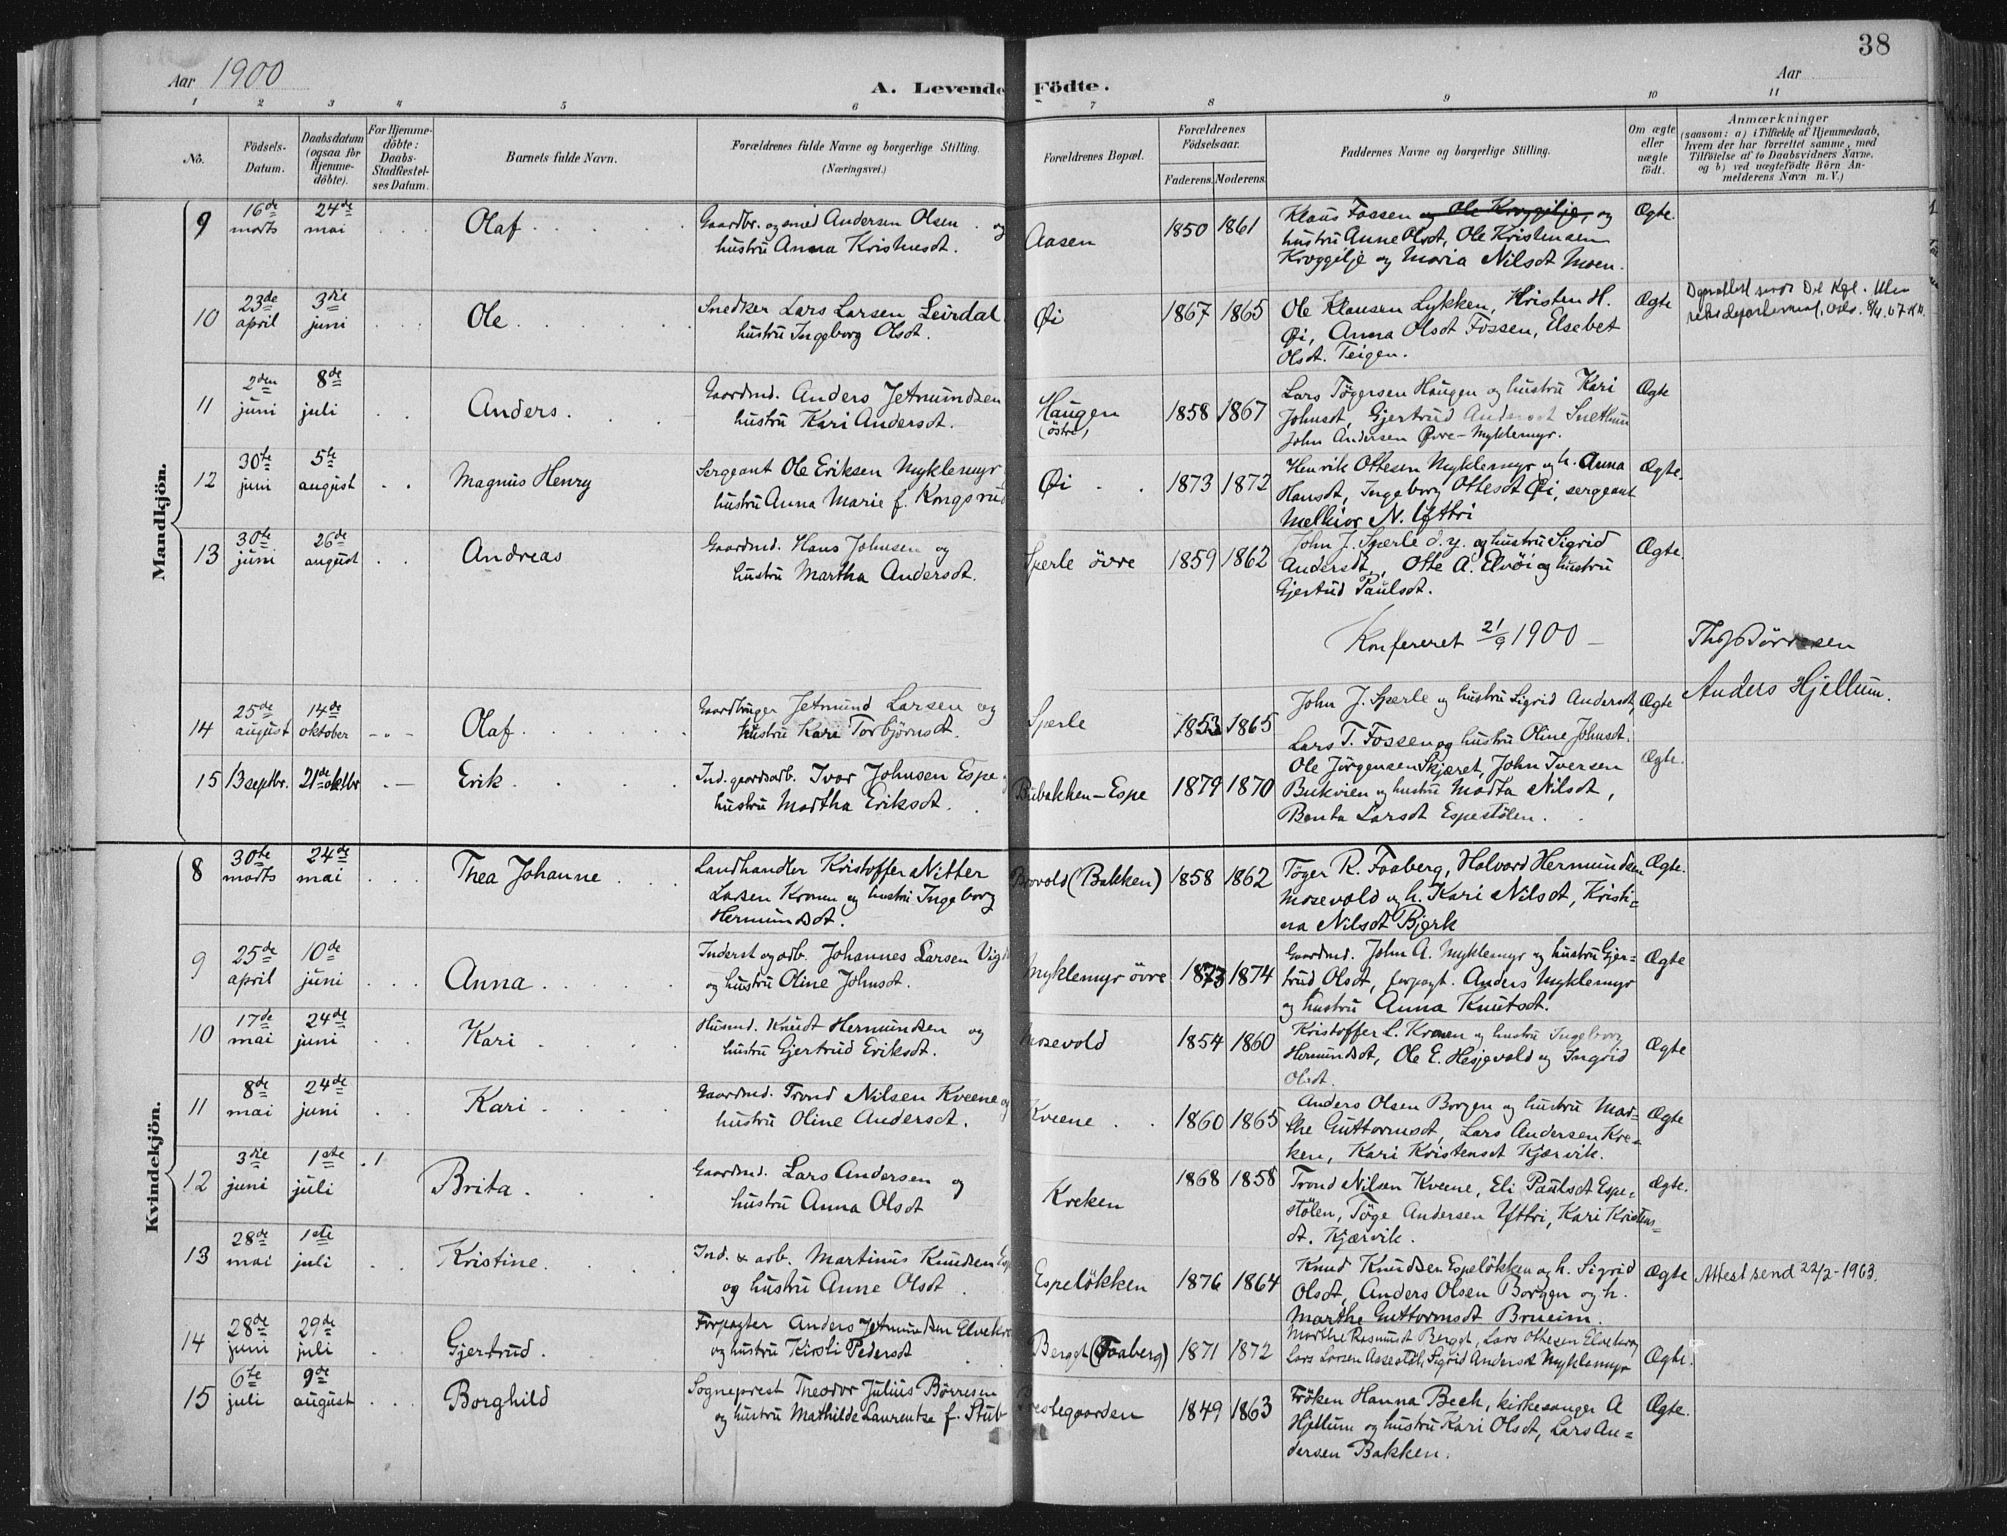 38
Aar 1900
A. Levende Födte.
Aar
1 2 3 4 5 6 7 8 9 10 11
No.
Födsels-Datum.
Daabsdatum (ogsaa for Hjemme-döbte).
For Hjemme-döbte: Daabs-Stadfæstel-ses Datum.
Barnets fulde Navn.
Forældrenes fulde Navne og borgerlige Stilling. (Næringsvei.)
Forældrenes Bopæl.
Forældrenes Födselsaar.
Faderens. Moderens.
Faddernes Navne og borgerlige Stilling.
Om ægte eller uægte födt.
Anmærkninger
(saasom: a) i Tilfælde af Hjemmedaab,
hvem der har forrettet samme, med
Tilföielse af to Daabsvidners Navne,
og b) ved uægtefödte Börn An-
melderens Navn m. V.)
Mandkjön.
9 16de marts 24de mai Olaf
Gaardbr. og smed Andersen Olsen og
hustru Anna Kristensdt.
Aasen 1850 1861
Klaus Fossen og Ole Kroggilje, og
hustru Anne Olsdt, Ole Kristensen
Kroggilje og Maria Nilsdt Moen.
Ægte.
10 23de april 3die juni Ole
Snedker Lars Larsen Leirdal
hustru Ingeborg Olsdt.
Øi 1867 1865
Ole Klausen Lykken, Kristen H.
Øi, Anna Olsdt Fossen, Elsebet
Olsdt. Teigen.
Ægte
11 2den juni 8de juli Anders.
Gaardmd. Anders Jetmundsen
hustru Kari Andersdt.
Haugen (östre) 1858 1867
Lars Tögersen Haugen og hustru Kari
Johnsdt, Gjertrud Andersdt Snethun
John Andersen Øvre-Myklemyr.
Ægte
12 30te juni 5te august Magnus Henry
Sergeant Ole Eriksen Myklemyr
hustru Anna Marie f. Kongsrud
Øi 1873 1872
Henrik Ottesen Myklemyr og h. Anna
Hansdt, Ingeborg Ottesdt Øi, sergeant
Melkior N. Yttri
Ægte.
13 30te juni 26de august Andreas
Gaardmd. Hans Johnsen og
hustru Martha Andersdt.
Sperle övre 1859 1862
John J. Sperle d. y. og hustru Sigrid
Andersdt, Otte A. Elvöi og hustru
Gjertrud Paulsdt.
Ægte.
Konfereret 21/9 1900 –
Anders Hjellum.
14 25de august 14de oktober Olaf
Gaardbruger Jetmund Larsen og
hustru Kari Torbjörnsdt.
Sperle 1853 1865
John J. Sperle og hustru Sigrid Andersdt,
Lars T. Fossen og hustru Oline Johnsdt.
Ægte
15 13 septbr. 21de oktbr Erik
Ind. gaardsarb. Ivar Johnsen Espe
hustru Martha Eriksdt.
Bubakken-Espe 1879 1870
Ole Jörgensen Skjæret, John Iversen
Bukvien og hustru Marta Nilsdt,
Benta Larsdt Espestölen.
Ægte.
Kvindekjön.
8 30te marts 24de mai Thea Johanne
Landhandler Kristoffer Nitter
Larsen Kronen og hustru Ingeborg
Hermundsdt.
Brovold (Bakken) 1858 1862
Töger R. Faaberg, Halvard Hermundsen
Mosevold og h. Kari Nilsdt, Kristi-
na Nilsdt Bjerk
Ægte.
9 25de april 10de juni Anna
Inderst og arb. Johannes Larsen
og hustru Oline Johnsdt.
Myklemyr övre 1873 1874
Gaardmd. John A. Myklemyr og hustru Gjer-
trud Olsdt, forpagt. Anders Myklemyr
og hustru Anna Knutsdt.
Ægte
10 17de mai 24de juni Kari
Husmd. Knudt Hermundsen og
hustru Gjertrud Eriksdt.
Mosevold 1854 1860
Kristoffer L. Kronen og hustru Ingeborg
Hermundsdt, Ole E. Hesjevold og Ingrid
Olsdt.
Ægte
11 8de mai 24de juni Kari
Gaardmd. Trond Nilsen Kveene og
hustru Oline Andersdt.
Kveene 1860 1865
Anders Olsen Borgen og hustru Mar-
the Guttormsdt, Lars Andersen Kre-
ken, Kari Kristensdt Kjærvik.
Ægte
12 3die juni 1ste juli Brita
Gaardmd. Lars Andersen og
hustru Anna Olsdt
Kreken 1868 1858
Trond Nilsen Kveene, Eli Paulsdt Espe-
stölen, Töge Andersen Yttri, Kari Kristens-
dt. Kjærvik.
Ægte.
13 28de mai 1ste juli Kristine.
Ind. & arb. Martinus Knudsen
og hustru Anne Olsdt
Espelökken 1876 1864
Knud Knudsen Espelökken og h. Sigrid
Olsdt, Anders Olsen Borgen og h.
Marthe Guttormsdt Brueim.
Ægte
Attest send 22/2-1963.
14 28de juni 29de juli Gjertrud.
Forpagter Anders Jetmundsen
og hustru Kirsti Pedersdt
Berget (Faaberg) 1871 1872
Marthe Rasmusdt Berget, Lars Ottesen
Lars Larsen Sigrid Andersdt Myklemyr
Ægte.
15 6te juli 9de august Borghild
Sogneprest Theodor Julius Börresen
og hustru Mathilde Laurentze f. Stub
Prestegaarden 1849 1863
Fröken Hanna Bech, kirkesanger A
Hjellum og hustru Kari Olsdt, Lars An-
dersen Bakken.
Ægte.